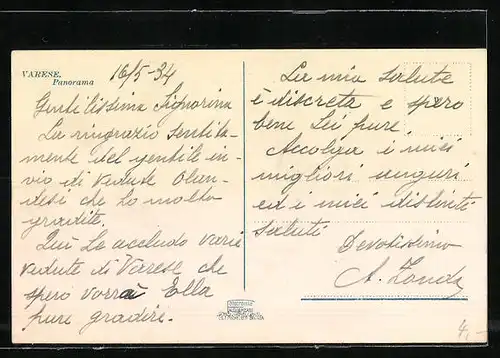 VARESE,
Panorama
16/5-34
Gentilissima Signorina
La ringrazio sentita-
mente del gentile in-
vio di vedute Olan-
desi che ho molto
gradite.
Qui Le accludo varie
vedute di Varese che
spero vorrà Ella
pure gradire.
La mia salute
è discreta e spero
bene Lei pure.
Accolga i miei
migliori auguri
ed i miei distinti
saluti
Devotissimo
A. Zonda
4,-